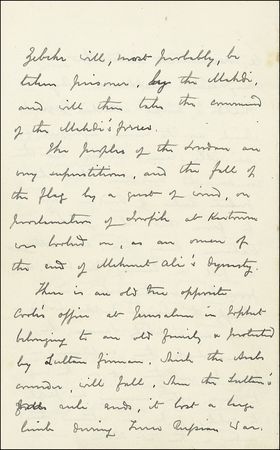 Zebehr will, most probably, be
taken prisoner, by the Mahdi,
and will then take the command
of the Mahdi's forces.
The peoples of the Soudan are
very superstitious, and the fall of
the flag by a gust of wind, on
proclamation of Tewfik at Kartoum
was looked on, as an omen of
the end of Mehemet Ali's dynasty.
There is an old tree opposite
Cook's office at Jerusalem in Tophet
belonging to an old family, & protected
by Sultan's firman, which the Arabs
consider, will fall, when the Sultan's
rule ends, it lost a large
limb during Turco Russian War.